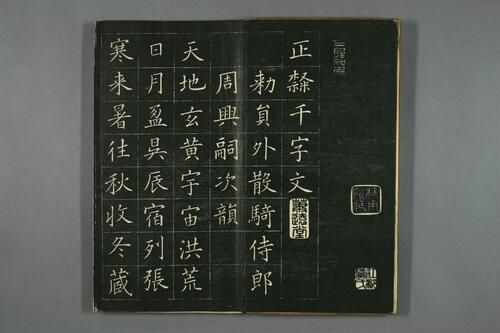 正隸千字文
勑貟外散騎侍郎
周興嗣次韻
天地玄黃宇宙洪荒
日月盈昃辰宿列張
寒来暑往秋收冬藏